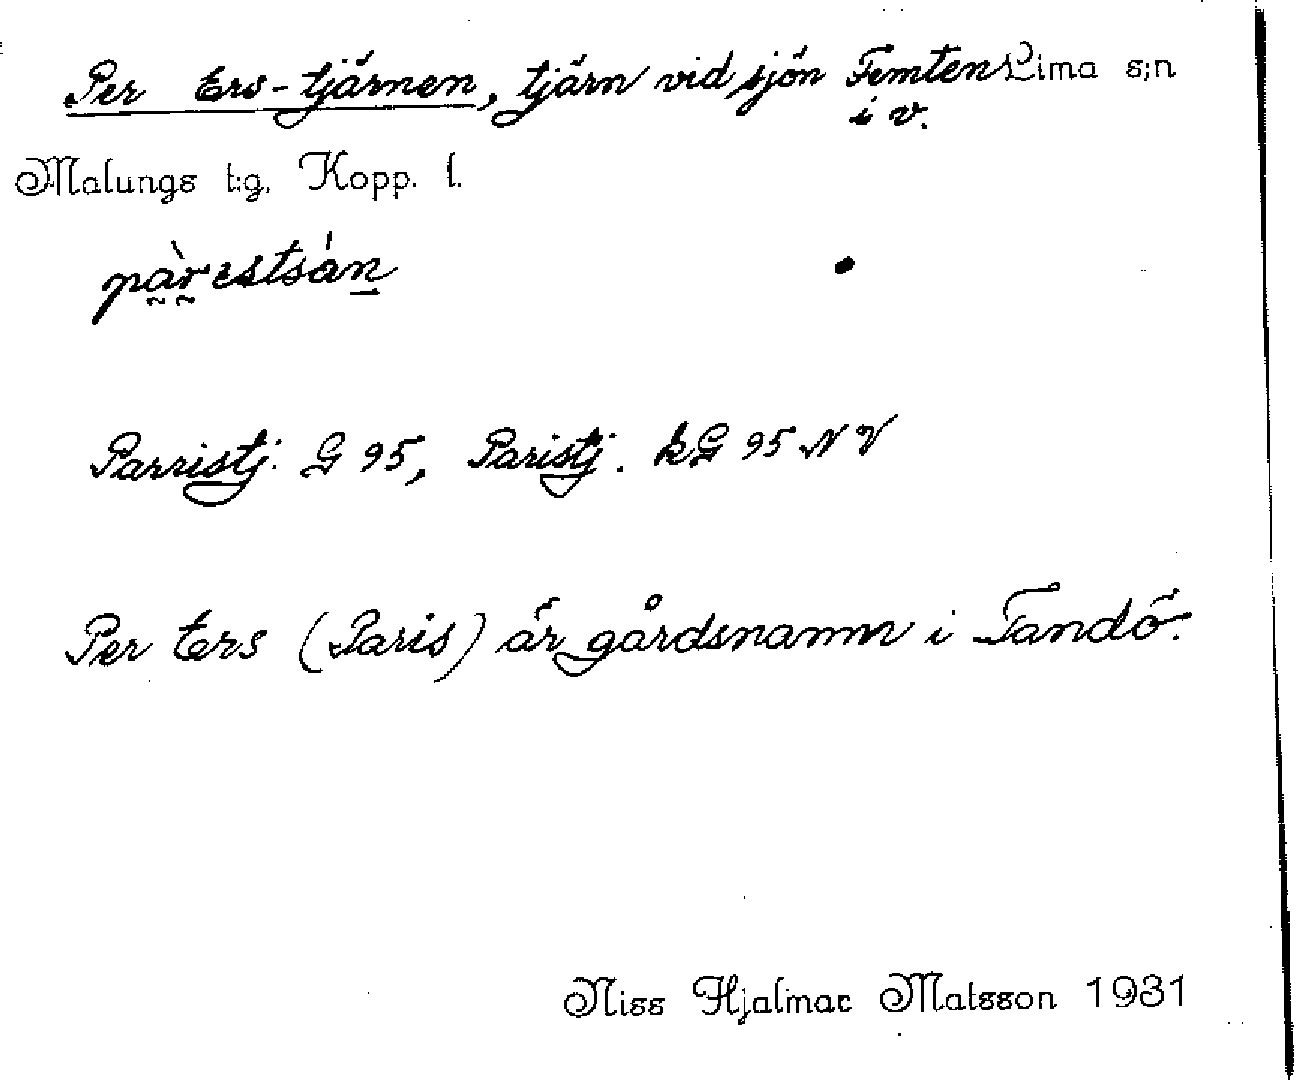 Per Ers-tjärnen, tjärn vid sjön Femten Lima s:n
i v.
Malungs t:g. Kopp. l.
pàrestsán
Parristj. G 95, Paristj. kG 95 NV
Per Ers (Paris) är gårdsnamn i Tandö.
Niss Hjalmar Matsson 1931